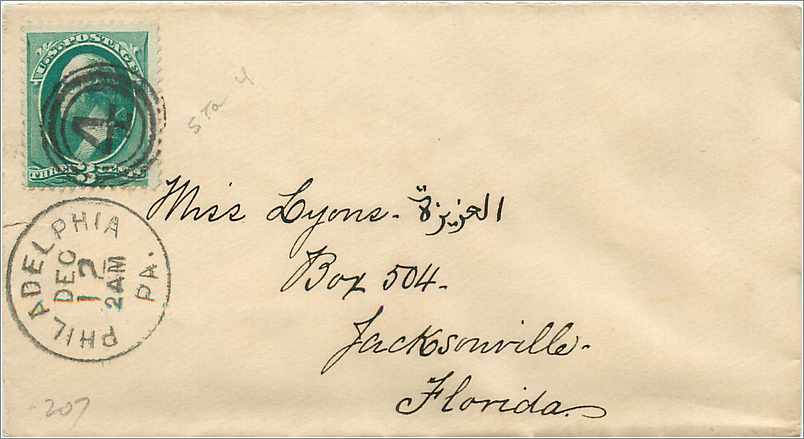 U.S. POSTAGE
THREE 3 CENTS
4
Sta 4
PHILADELPHIA PA.
DEC
12
2AM
Miss Lyons - العزيزة
Box 504 -
Jacksonville -
Florida.
- 207